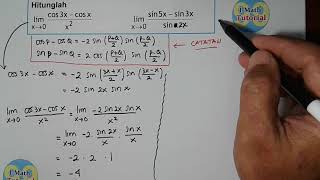 Hitunglah
lim x→0 (cos3x − cosx)/x²    lim x→0 (sin5x − sin3x)/sin2x
cos P − cos Q = −2 sin((P+Q)/2) sin((P−Q)/2)
sin P − sin Q = 2 cos((P+Q)/2) sin((P−Q)/2)
CATATAN
cos3x − cosx = −2 sin((3x+x)/2) sin((3x−x)/2)
= −2 sin2x sinx
lim x→0 (cos3x − cosx)/x² = lim x→0 (−2 sin2x sinx)/x²
= lim x→0 −2 · sin2x/x · sinx/x
= −2 · 2 · 1
= −4
Math
Tutorial
Math
Tutorial